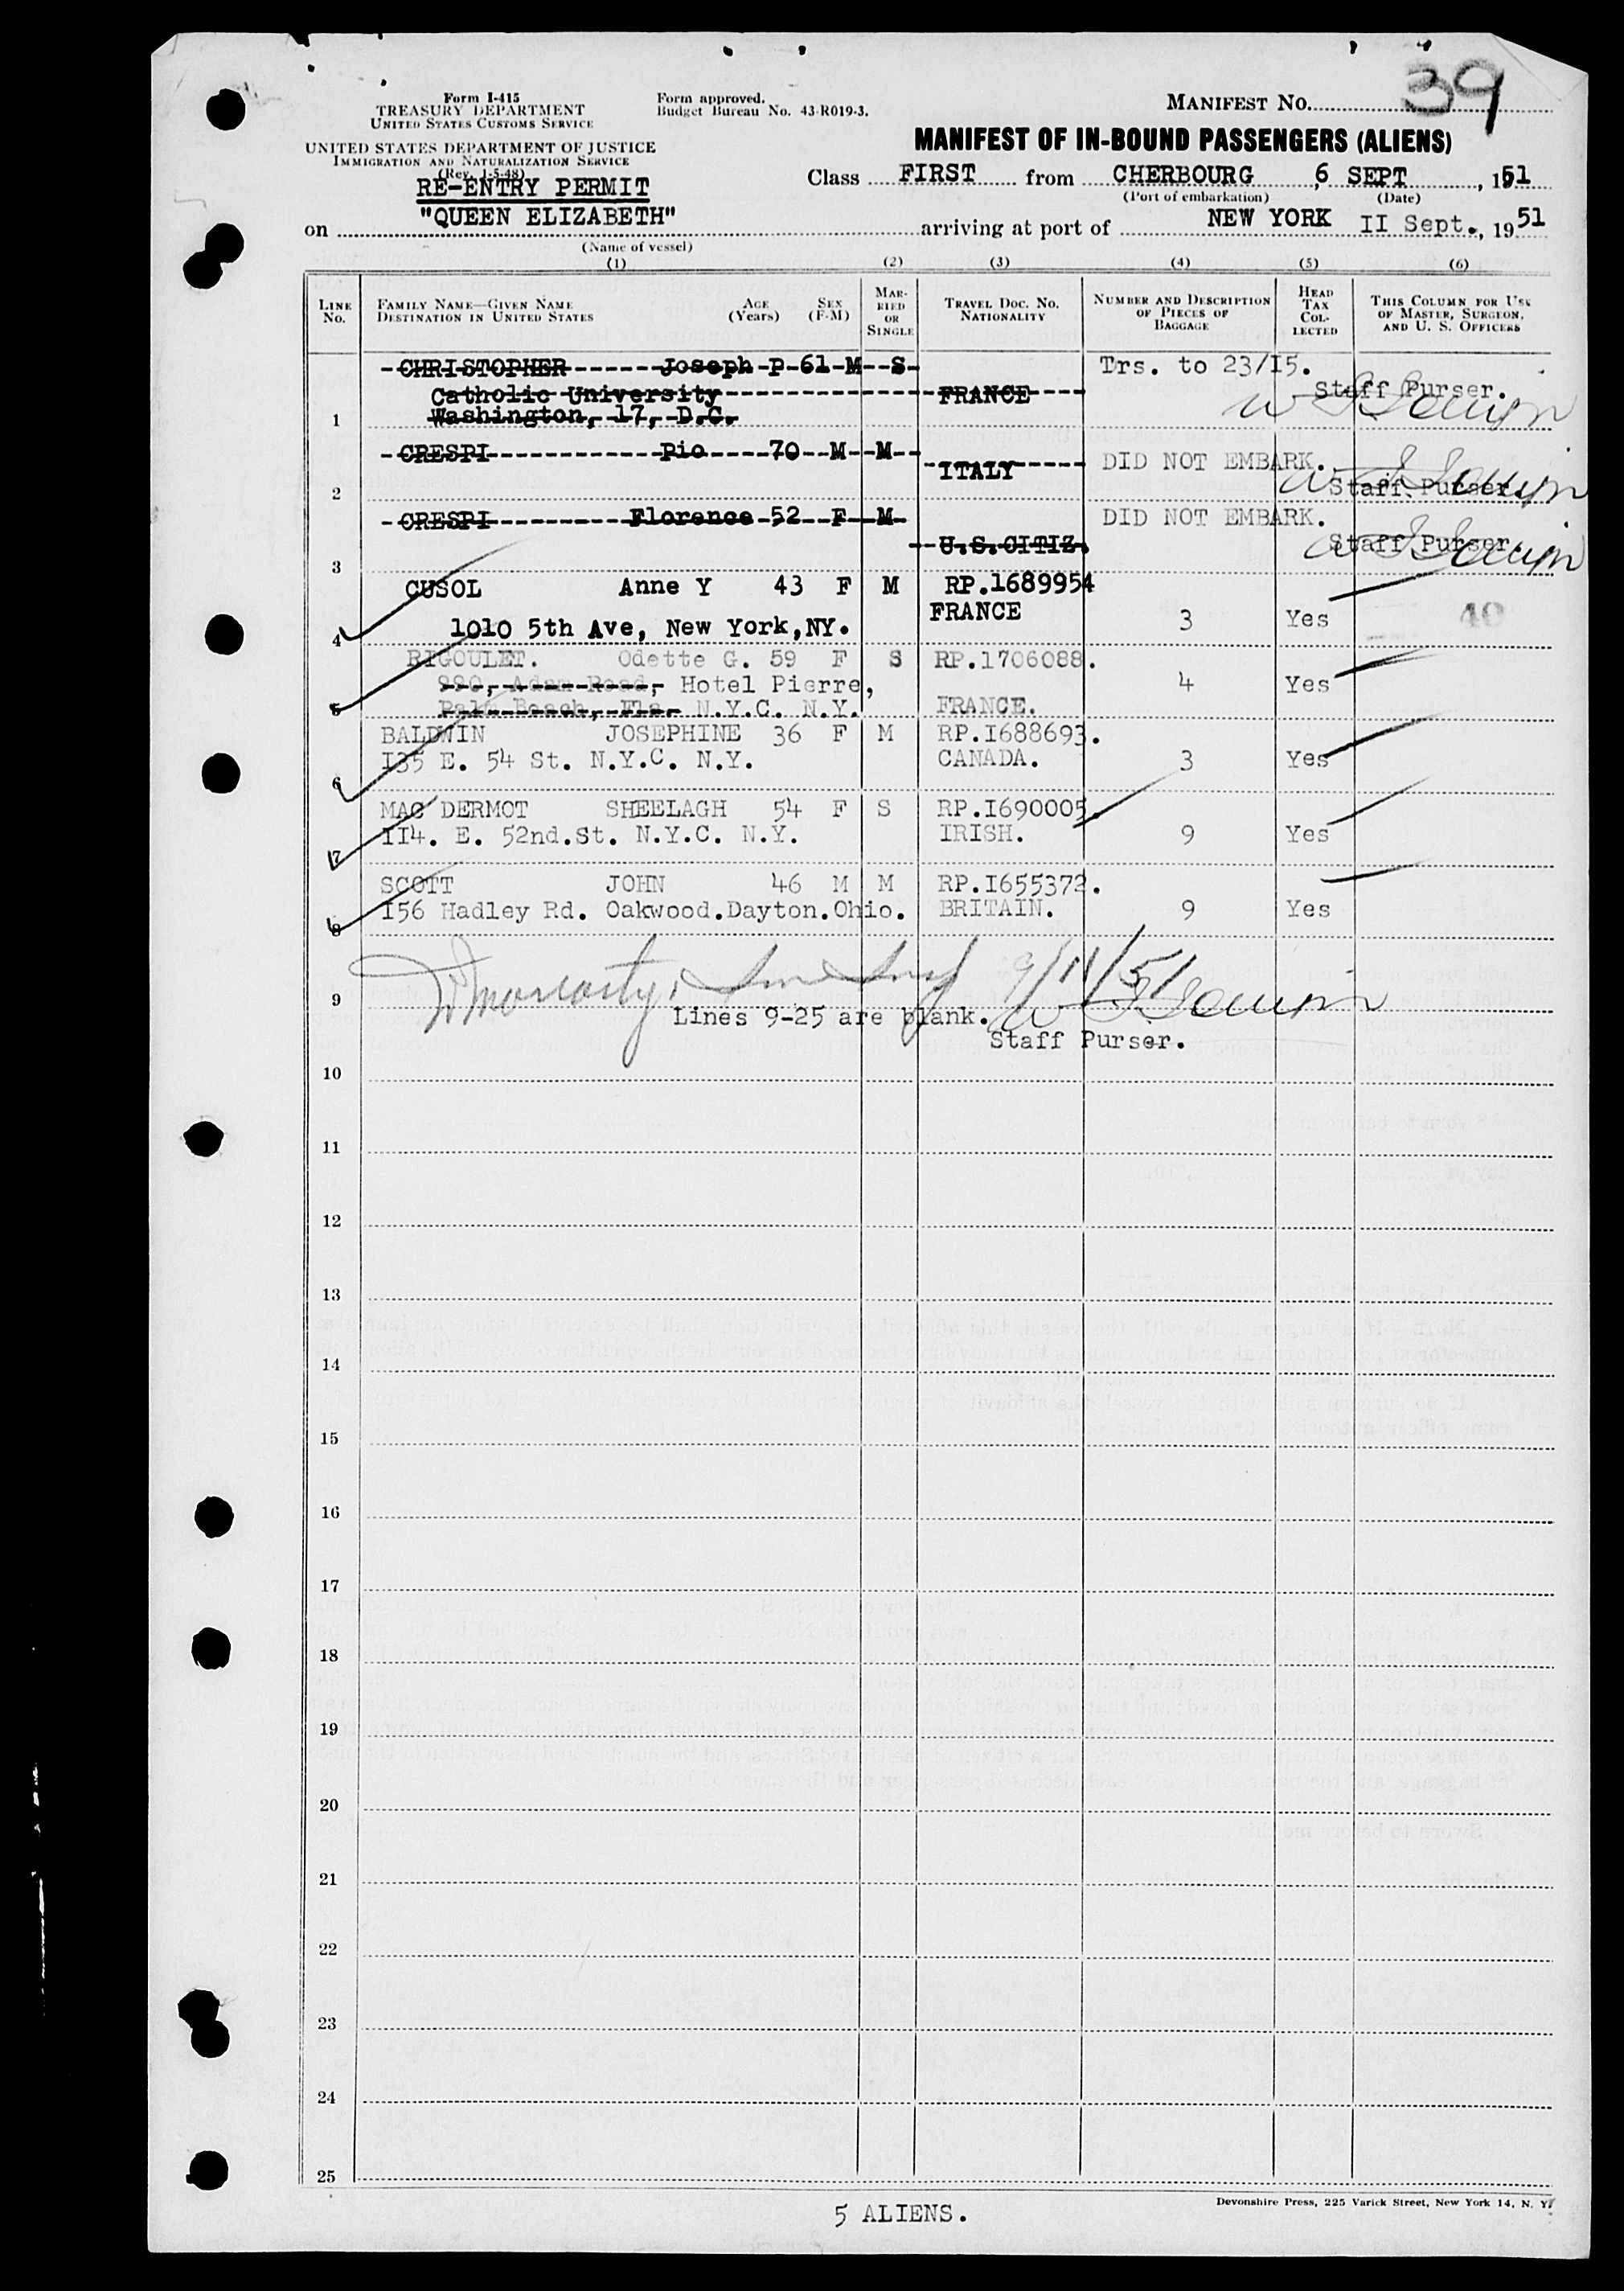 39
Form I-415
TREASURY DEPARTMENT
UNITED STATES CUSTOMS SERVICE
Form approved.
Budget Bureau No. 43-R019-3.
MANIFEST NO.
UNITED STATES DEPARTMENT OF JUSTICE
IMMIGRATION AND NATURALIZATION SERVICE
(Rev. 1-5-48)
MANIFEST OF IN-BOUND PASSENGERS (ALIENS)
RE-ENTRY PERMIT
Class FIRST from CHERBOURG , 6 SEPT , 1951
(Port of embarkation) (Date)
on "QUEEN ELIZABETH" arriving at port of NEW YORK II Sept., 1951
(Name of vessel)
(1) (2) (3) (4) (5) (6)
LINE NO. FAMILY NAME—GIVEN NAME DESTINATION IN UNITED STATES AGE (YEARS) SEX (F-M) MARRIED OR SINGLE TRAVEL DOC. NO. NATIONALITY NUMBER AND DESCRIPTION OF PIECES OF BAGGAGE HEAD TAX COLLECTED THIS COLUMN FOR USE OF MASTER, SURGEON, AND U. S. OFFICERS
CHRISTOPHER Joseph P 61 M S Trs. to 23/I5.
Catholic University FRANCE Staff Purser.
1 Washington, 17, D.C.
CRESPI Pio 70 M M ITALY DID NOT EMBARK.
2 Staff Purser.
CRESPI Florence 52 F M DID NOT EMBARK.
U.S.CITIZ. Staff Purser.
3
CUSOL Anne Y 43 F M RP.1689954
FRANCE 3 Yes 40
4 1010 5th Ave, New York,NY.
RIGOULET. Odette G. 59 F S RP.1706088.
990, Adam Road, Hotel Pierre, 4 Yes
5 Palm Beach, Fla. N.Y.C. N.Y. FRANCE.
BALDWIN JOSEPHINE 36 F M RP.I688693.
I35 E. 54 St. N.Y.C. N.Y. CANADA. 3 Yes
6
MAC DERMOT SHEELAGH 54 F S RP.I690005
II4. E. 52nd.St. N.Y.C. N.Y. IRISH. 9 Yes
7
SCOTT JOHN 46 M M RP.I655372.
I56 Hadley Rd. Oakwood.Dayton.Ohio. BRITAIN. 9 Yes
8
Moriarty, 9/11/51
9
Lines 9-25 are blank.
Staff Purser.
10
11
12
13
14
15
16
17
18
19
20
21
22
23
24
25
Devonshire Press, 225 Varick Street, New York 14, N. Y.
5 ALIENS.